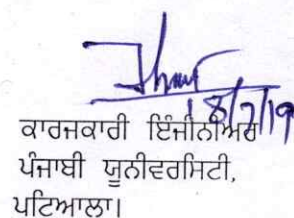 18/7/19
ਕਾਰਜਕਾਰੀ ਇੰਜੀਨੀਅਰ
ਪੰਜਾਬੀ ਯੂਨੀਵਰਸਿਟੀ,
ਪਟਿਆਲਾ।